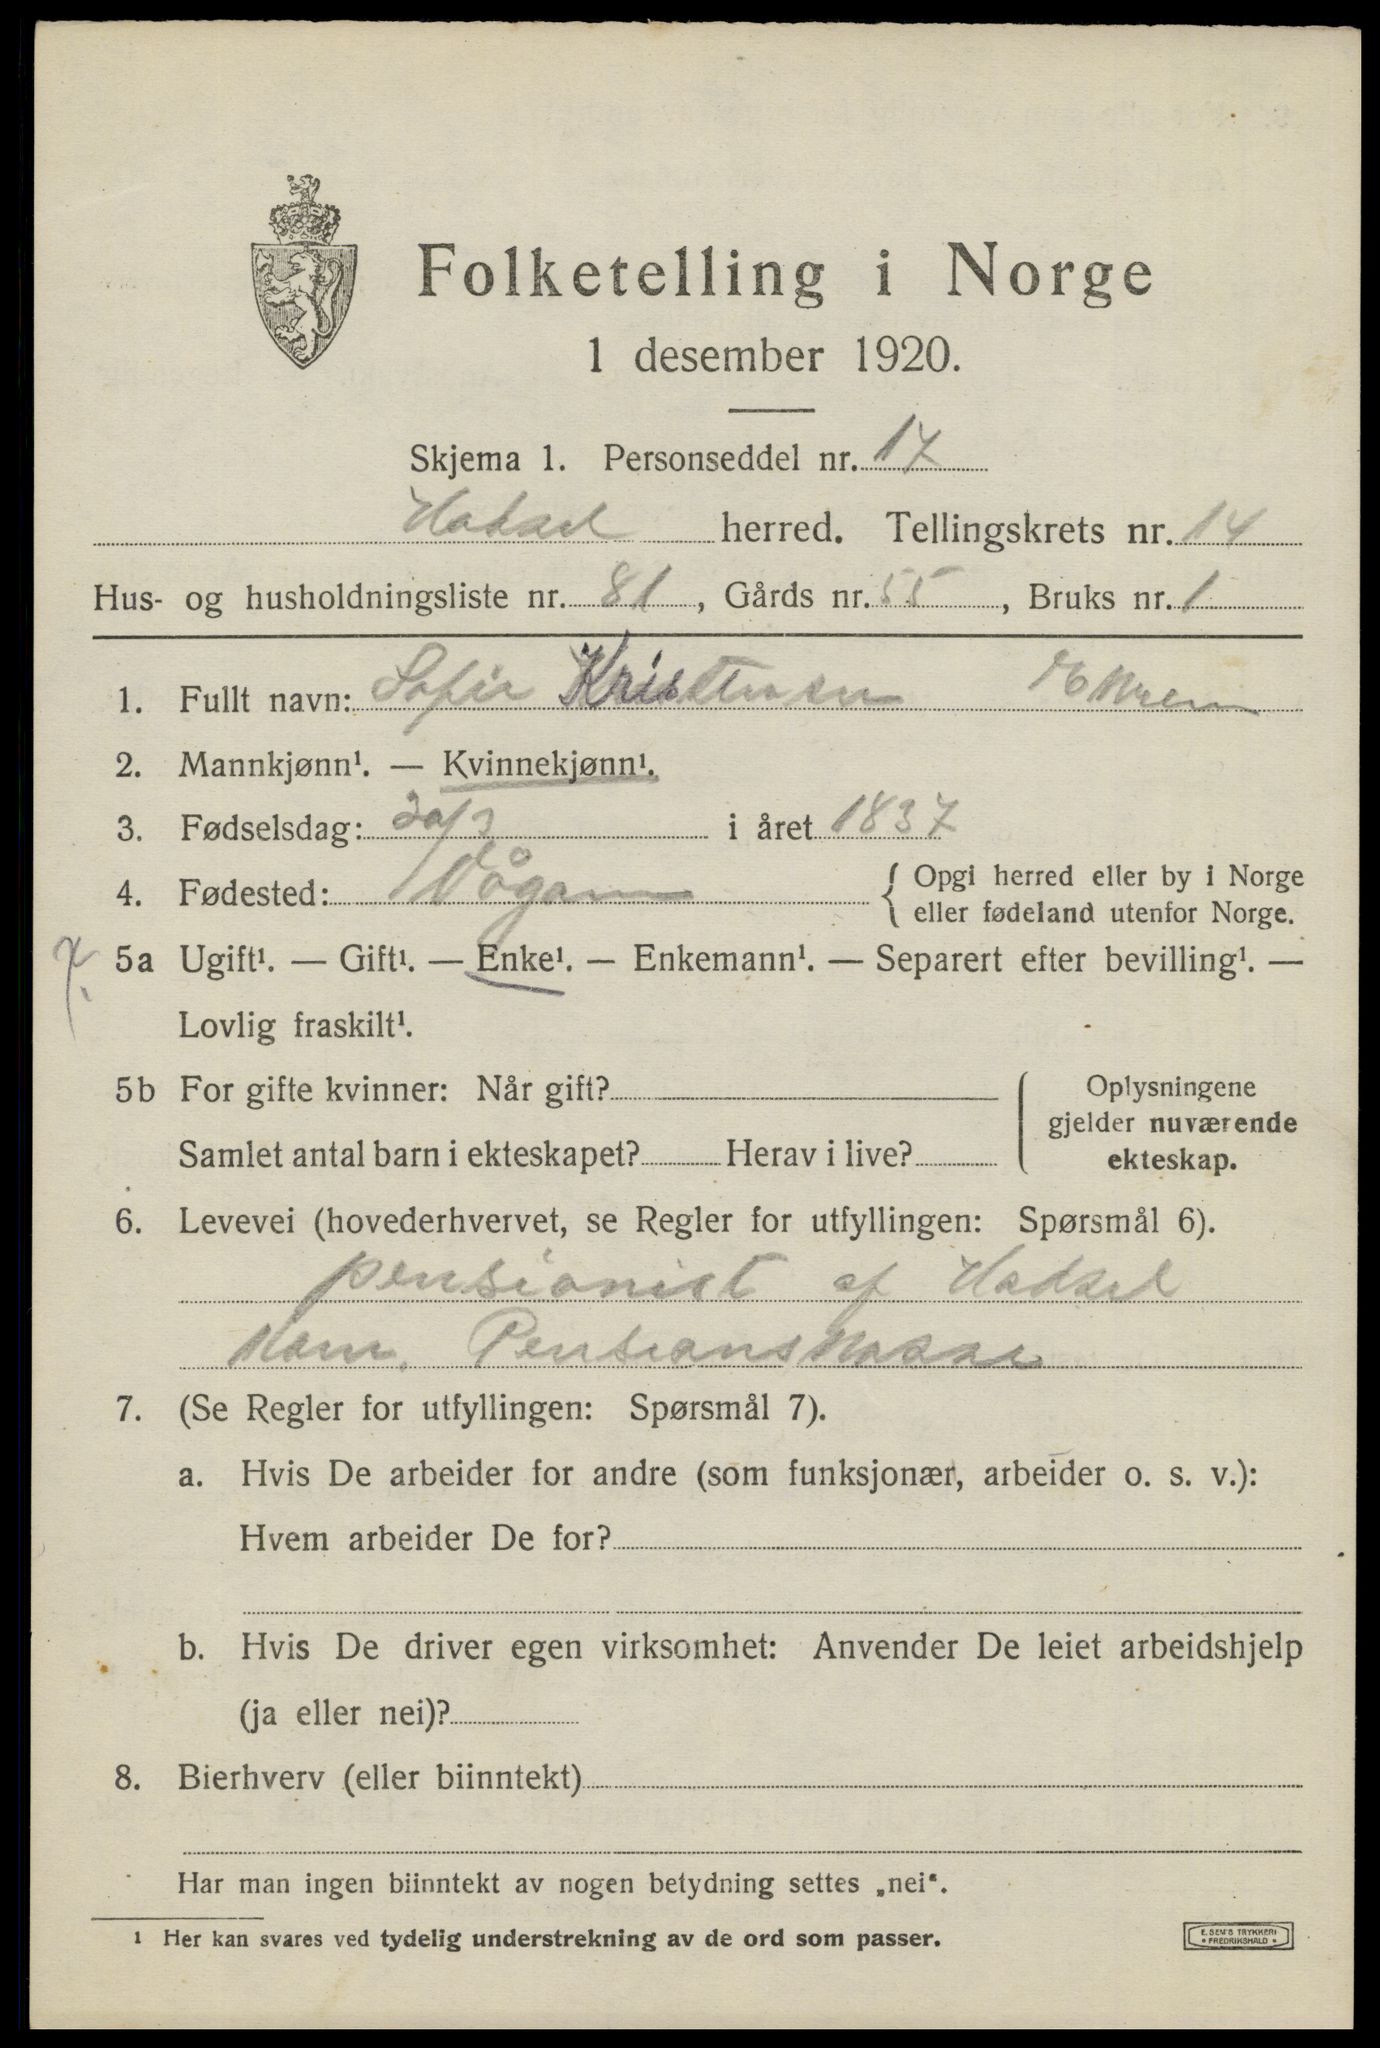 Folketelling i Norge
1 desember 1920.
Skjema 1. Personseddel nr. 17
Hadsel herred. Tellingskrets nr. 14
Hus- og husholdningsliste nr. 81, Gårds nr. 55, Bruks nr. 1
1. Fullt navn: Sofie Kristensen
2. Mannkjønn¹. — Kvinnekjønn¹.
3. Fødselsdag: 20/3 i året 1837
4. Fødested: Vågan { Opgi herred eller by i Norge
eller fødeland utenfor Norge.
5a Ugift¹. — Gift¹. — Enke¹. — Enkemann¹. — Separert efter bevilling¹. —
Lovlig fraskilt¹.
5b For gifte kvinner: Når gift?
Samlet antal barn i ekteskapet? Herav i live?
Oplysningene
gjelder nuværende
ekteskap.
6. Levevei (hovederhvervet, se Regler for utfyllingen: Spørsmål 6).
pensionist af Hadsel
Kom. Pensionskasse
7. (Se Regler for utfyllingen: Spørsmål 7).
a. Hvis De arbeider for andre (som funksjonær, arbeider o. s. v.):
Hvem arbeider De for?
b. Hvis De driver egen virksomhet: Anvender De leiet arbeidshjelp
(ja eller nei)?
8. Bierhverv (eller biinntekt)
Har man ingen biinntekt av nogen betydning settes „nei“.
1 Her kan svares ved tydelig understrekning av de ord som passer.
E. SEM'S TRYKKERI
• FREDRIKSHALD •